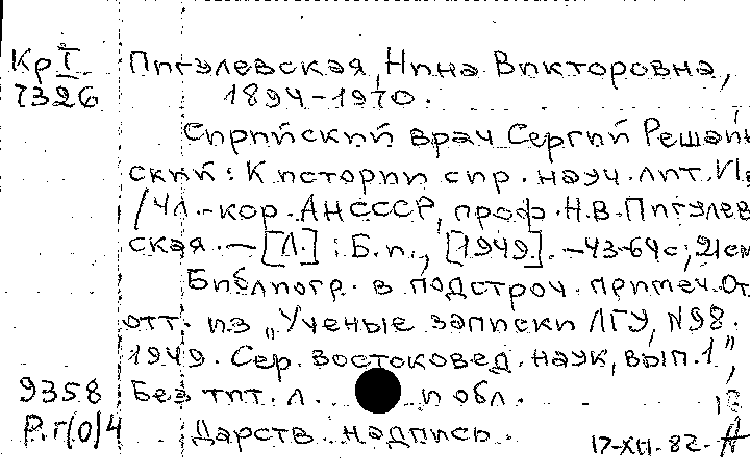 КрI Пигулевская, Нина Викторовна,
7326 1894-1970.
Сирийский врач Сергий Решай
ский: К истории сир. науч. лит. VIв
/Чл.-кор. АН СССР, проф. Н.В. Пигулев
ская. — [Л.]: Б.и., [1949]. -43-64с; 21см
Библиогр. в подстроч. примеч. От
отт. из „Ученые записки ЛГУ, N98.
1949. Сер. востоковед. наук, вып. 1",
9358 Без тит. л. и обл.
Р.г(0)4 Дарств. надпись. 17-XII-82-А